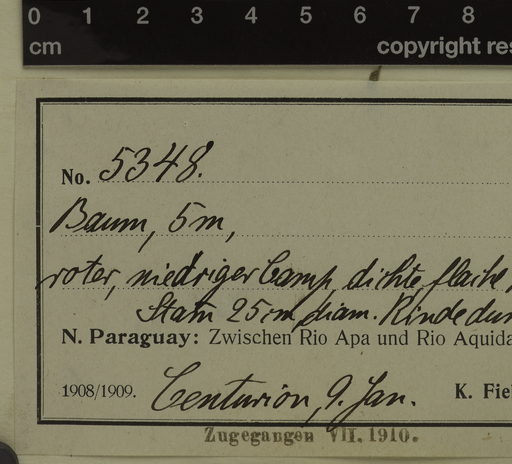 0 1 2 3 4 5 6 7 8
cm copyright res
No. 5348.
Baum, 5m,
roter, niedriger Camp, dichte flache
Stam 25cm diam. Rinde dun
N. Paraguay: Zwischen Rio Apa und Rio Aquida
1908/1909. Centurion, 9. Jan. K. Fie
Zugegangen VII. 1910.